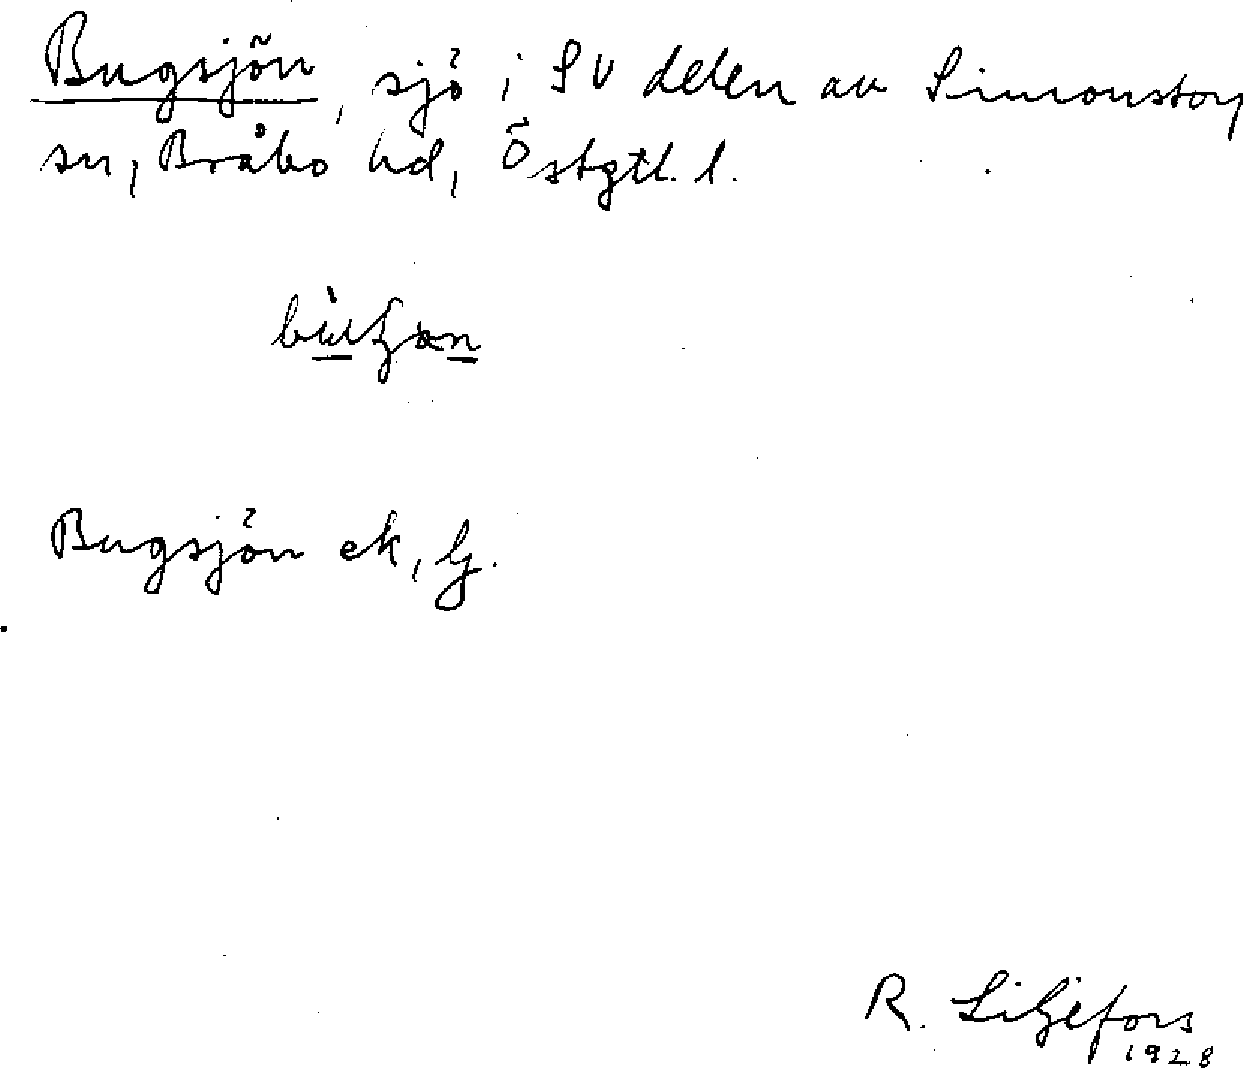 Bugsjön, sjö i SV delen av Simonstorp
sn, Bråbo hd, Östgtl. l.
Bugsjön ek, Gj.
R. Liljefors
1928